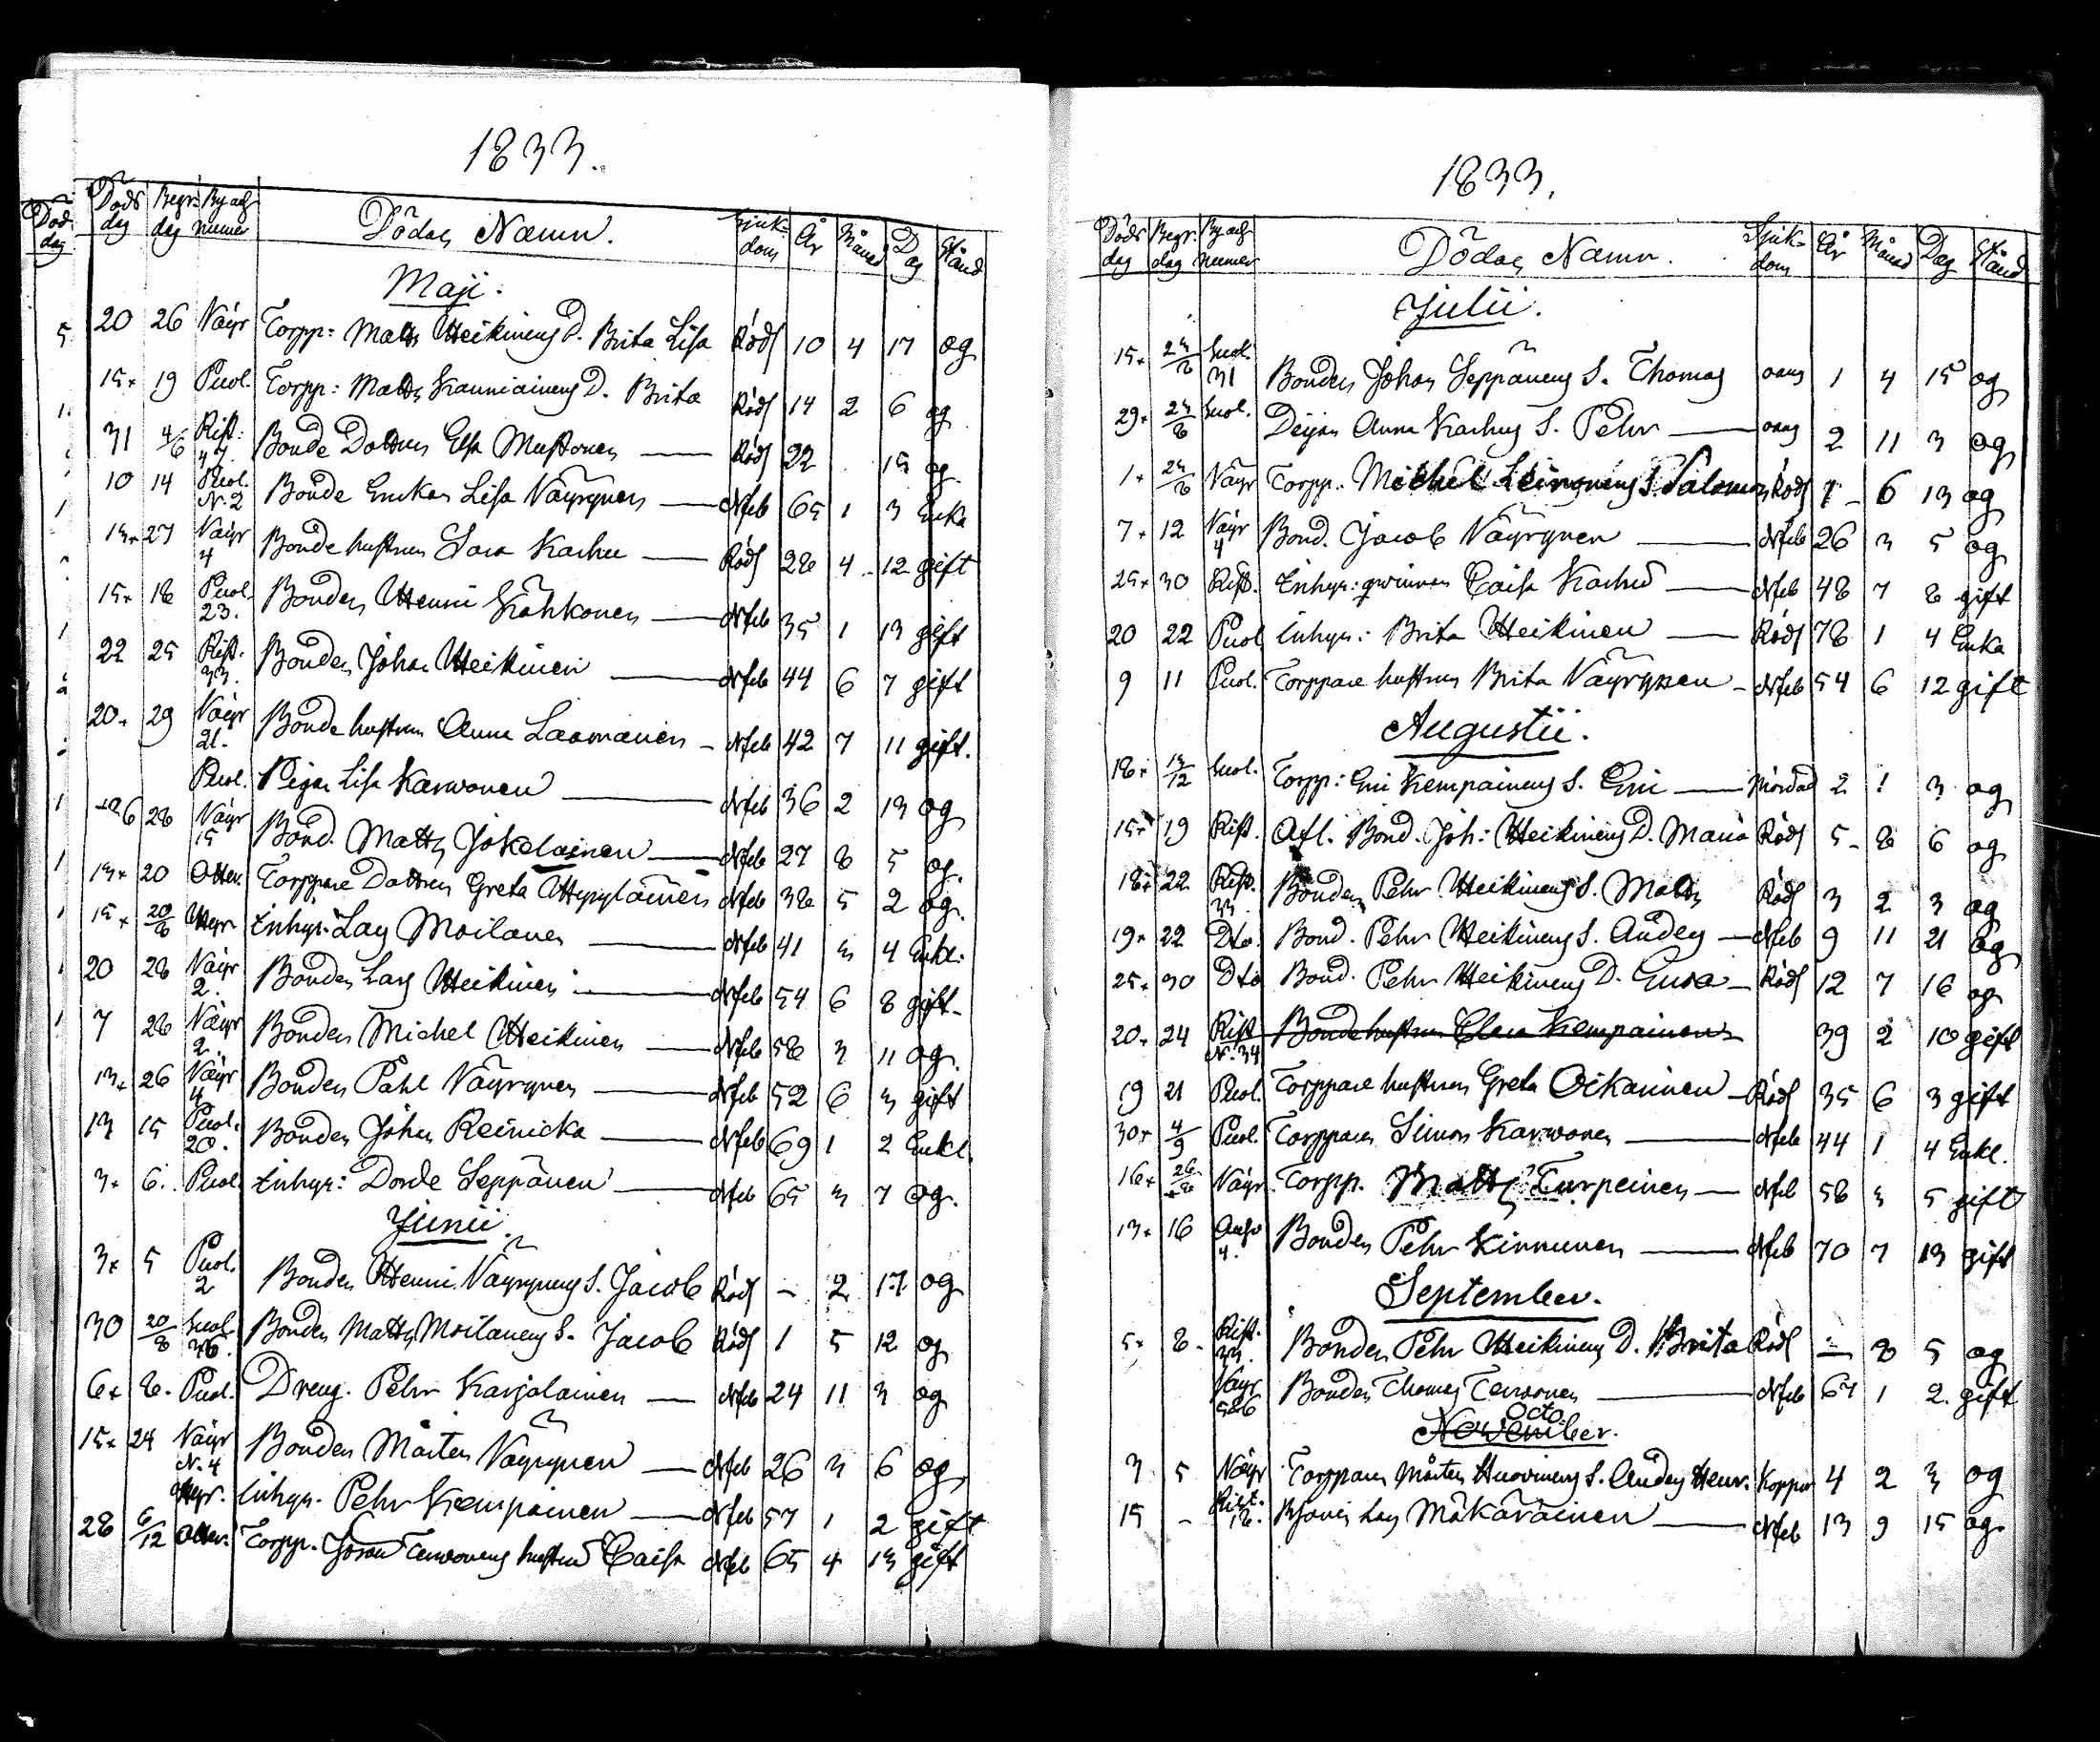 1833.
Döds dag Begr. dag By och numer Dödas Namn. Sjukdom År Månad Dag Stånd
Maji.
20 26 Väyr Torpp: Matts Heikinens D. Brita Lisa Röds 10 4 17 og
15* 19 Puol. Torpp: Matts Kauniainens D. Brita Röds 14 2 6 og
31 4/6 Rist: 47. Bonde Dottren Elsa Mustonen — Röds 22 15 og.
10 14 Puol. N. 2 Bonde Enkan Lisa Väyrynen — Nfeb 65 1 3 Enka
13* 27 Väyr 4 Bonde hustrun Sara Karhu — Röds 28 4 - 12 gift
15* 18 Puol. 23. Bonden Henric Kähkönen — Nfeb 35 1 13 gift
22 25 Rist. 33. Bonden Johan Heikinen — Nfeb 44 6 7 gift
20. 29 Väyr 21. Bonde hustrun Anna Laomanen — Nfeb 42 7 11 gift.
Puol. Pigan Lisa Karwonen — Nfeb 36 2 13 og
26 28 Väyr 15 Bond. Matts Jokelainen — Nfeb 27 8 5 og.
13* 20 Otter. Torppare Dottren Greta Hyyryläinen Nfeb 38 5 2 og.
15* 20/8 Hyr. Inhys: Lars Moilanen — Nfeb 41 3 4 Enkl.
20 28 Väyr 2. Bonden Lars Heikinen — Nfeb 54 6 8 gift.
7 28 Väyr 2. Bonden Michel Heikinen — Nfeb 58 3 11 og.
13* 26 Väyr 4 Bonden Påhl Väyrynen — Nfeb 52 6 3 gift
13 15 Puol. 20. Bonden Johan Reinicka — Nfeb 69 1 2 Enkl.
3* 6. Puol. Inhys: Dorde Seppänen — Nfeb 65 3 7 og.
Junii.
3* 5 Puol. 2 Bonden Henric Väyrynens S. Jacob Röds - 2 17 og
30 20/8 Suol. 36. Bonden Matts Moilanens S. Jacob Röds 1 5 12 og
6* 8. Puol. Dreng. Pehr Karjalainen — Nfeb 24 11 3 og
15* 24 Väyr N. 4 Bonden Mårten Väyrynen — Nfeb 26 3 6 og
Hyr. Inhys. Pehr Kempainen — Nfeb 57 1 2 gift
28 6/12 Otter. Torpp. Joran Terwonens hustru Caisa Nfeb 65 4 13 gift
1833.
Döds dag Begr. dag By och numer Dödas Namn. Sjukdom År Månad Dag Stånd
Julii.
15* 24/8 Suol. 31 Bonden Johan Seppänens S. Thomas 1 4 15 og
29* 24/8 Suol. Pigan Anna Karhus S. Pehr — 2 11 3 og
1* 24/8 Väyr Torpp. Michel Leinonens S. Salomon Röds 1 - 6 13 og
7* 12 Väyr 4 Bond. Jacob Väyrynen — Nfeb 26 3 5 og
25* 30 Rist. Inhys: qwinnan Caisa Karhu — Nfeb 48 7 8 gift
20 22 Puol. Inhys: Brita Heikinen — Röds 78 1 4 Enka
9 11 Puol. Torppare hustrun Brita Väyrynen — Nfeb 54 6 12 gift
Augustii.
18* 13/12 Suol. Torpp: Eric Kempainens S. Eric — Mördad 2 1 3 og
15* 19 Rist. Afl. Bond. Joh: Heikinens D. Maria Röds 5 - 8 6 og
18* 22 Rist. 33. Bonden Pehr Heikinens S. Matts Röds 3 2 3 og
19* 22 Dto. Bond. Pehr Heikinens S. Anders — Nfeb 9 11 21 og
25* 30 Dto Bond. Pehr Heikinens D. Ewa — Röds 12 7 16 og
20* 24 Rist N. 34 Bonde hustrun Clara Kempainen 39 2 10 gift
19 21 Puol. Torppare hustrun Greta Oikarinen — Röds 35 6 3 gift
30* 4/9 Puol. Torpparen Simon Karwonen — Nfeb 44 1 4 Enkl.
16* 26/8 Väyr. Torpp. Matts Turpeinen — Nfeb 58 3 5 gift
13* 16 4. Bonden Pehr Kinnunen — Nfeb 70 7 13 gift
September.
5* 8. Rist. 33. Bonden Pehr Heikinens D. Brita Röds - 8 5 og
Väyr 5&6 Bonden Thomas Terwonen — Nfeb 67 1 2. gift
Octo
November.
3 5 Väyr Torpparen Mårten Huovinens S. Anders Henr. Koppor 4 2 3 og
15 - Rist. 18. Lars Mäkäräinen — Nfeb 13 9 15 og.